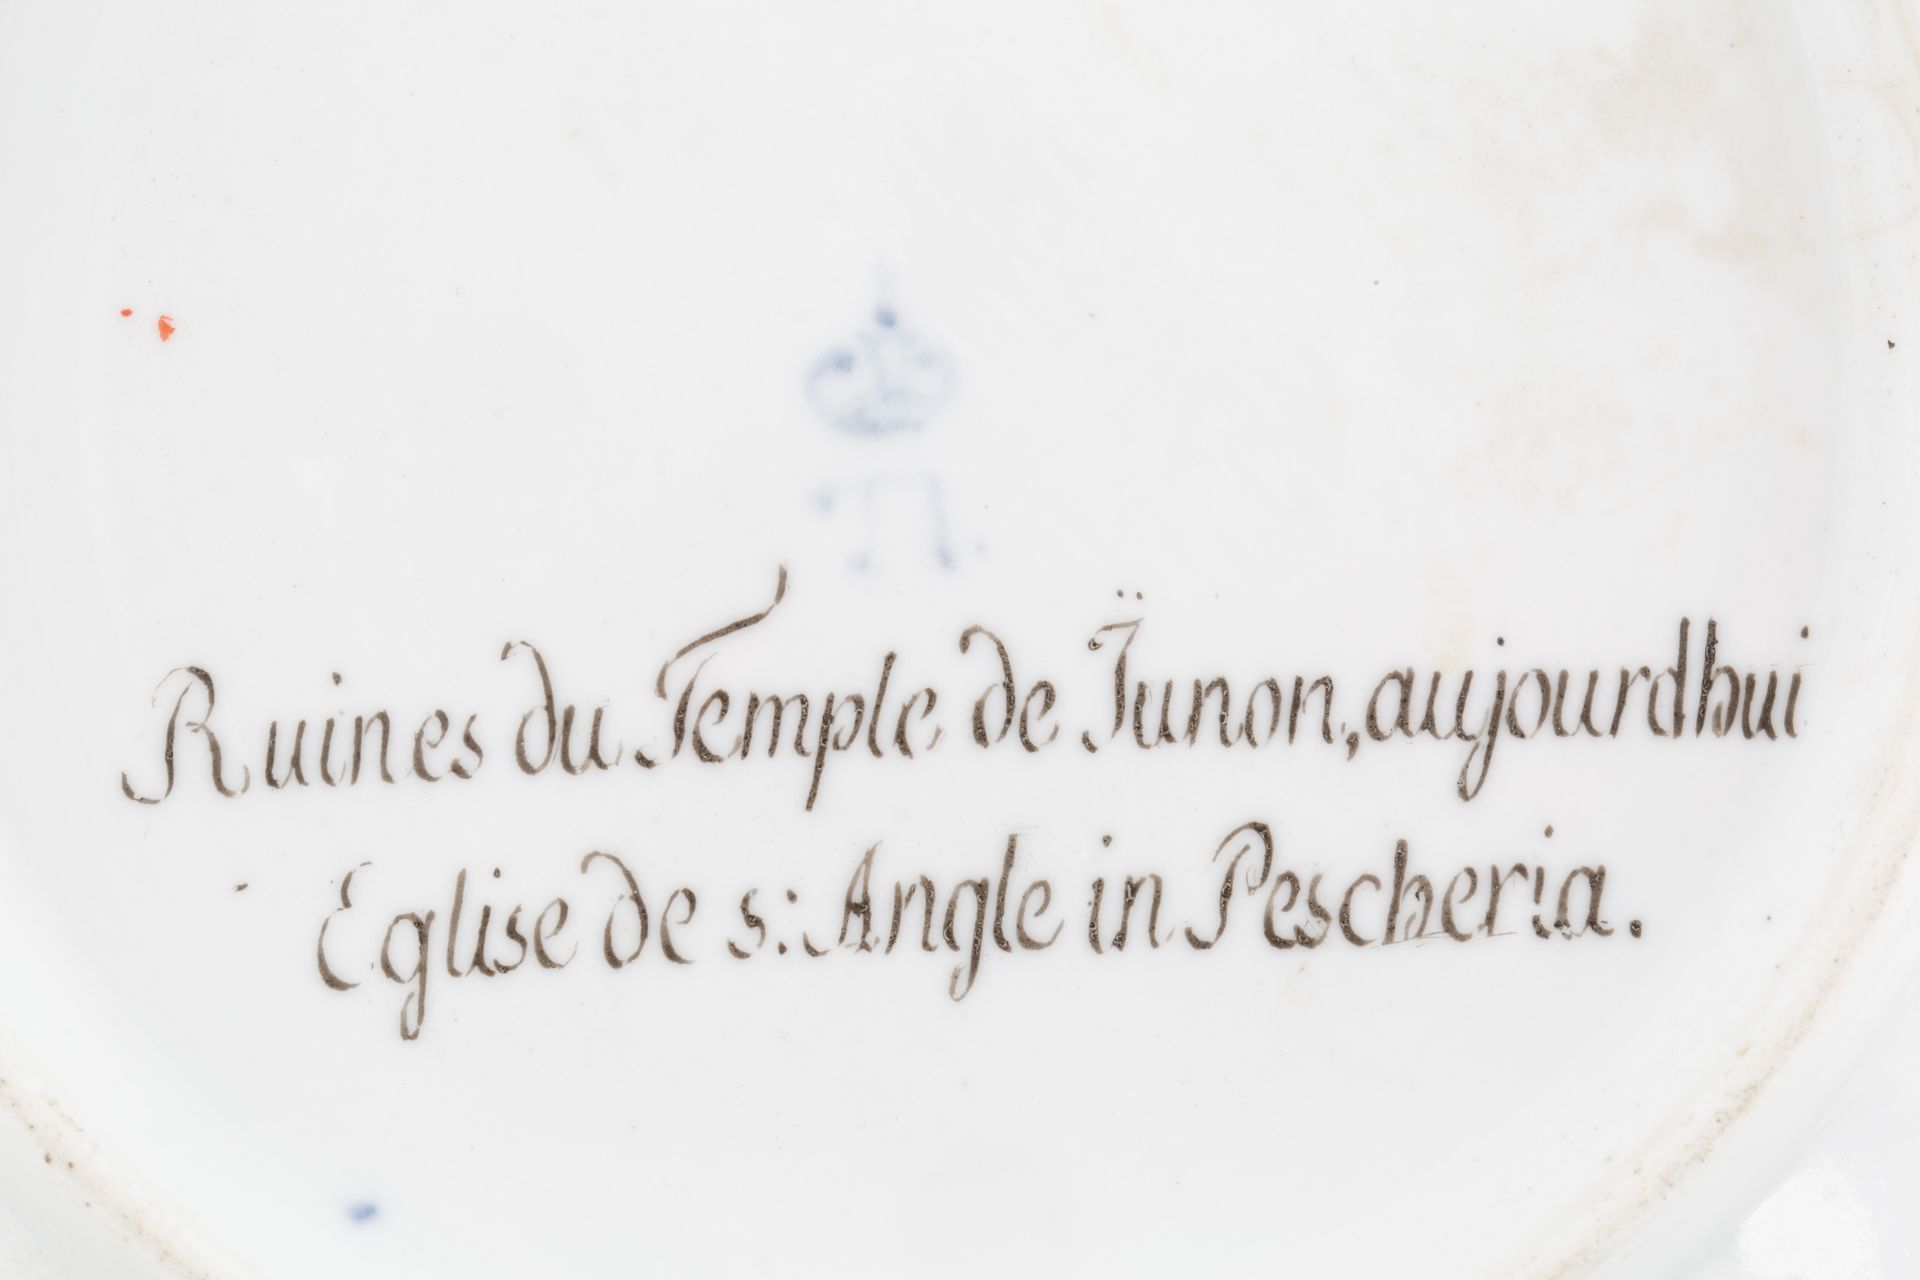 Ruines du Temple de J̈unon, aujourdhui
Eglise de s: Angle in Pescheria.